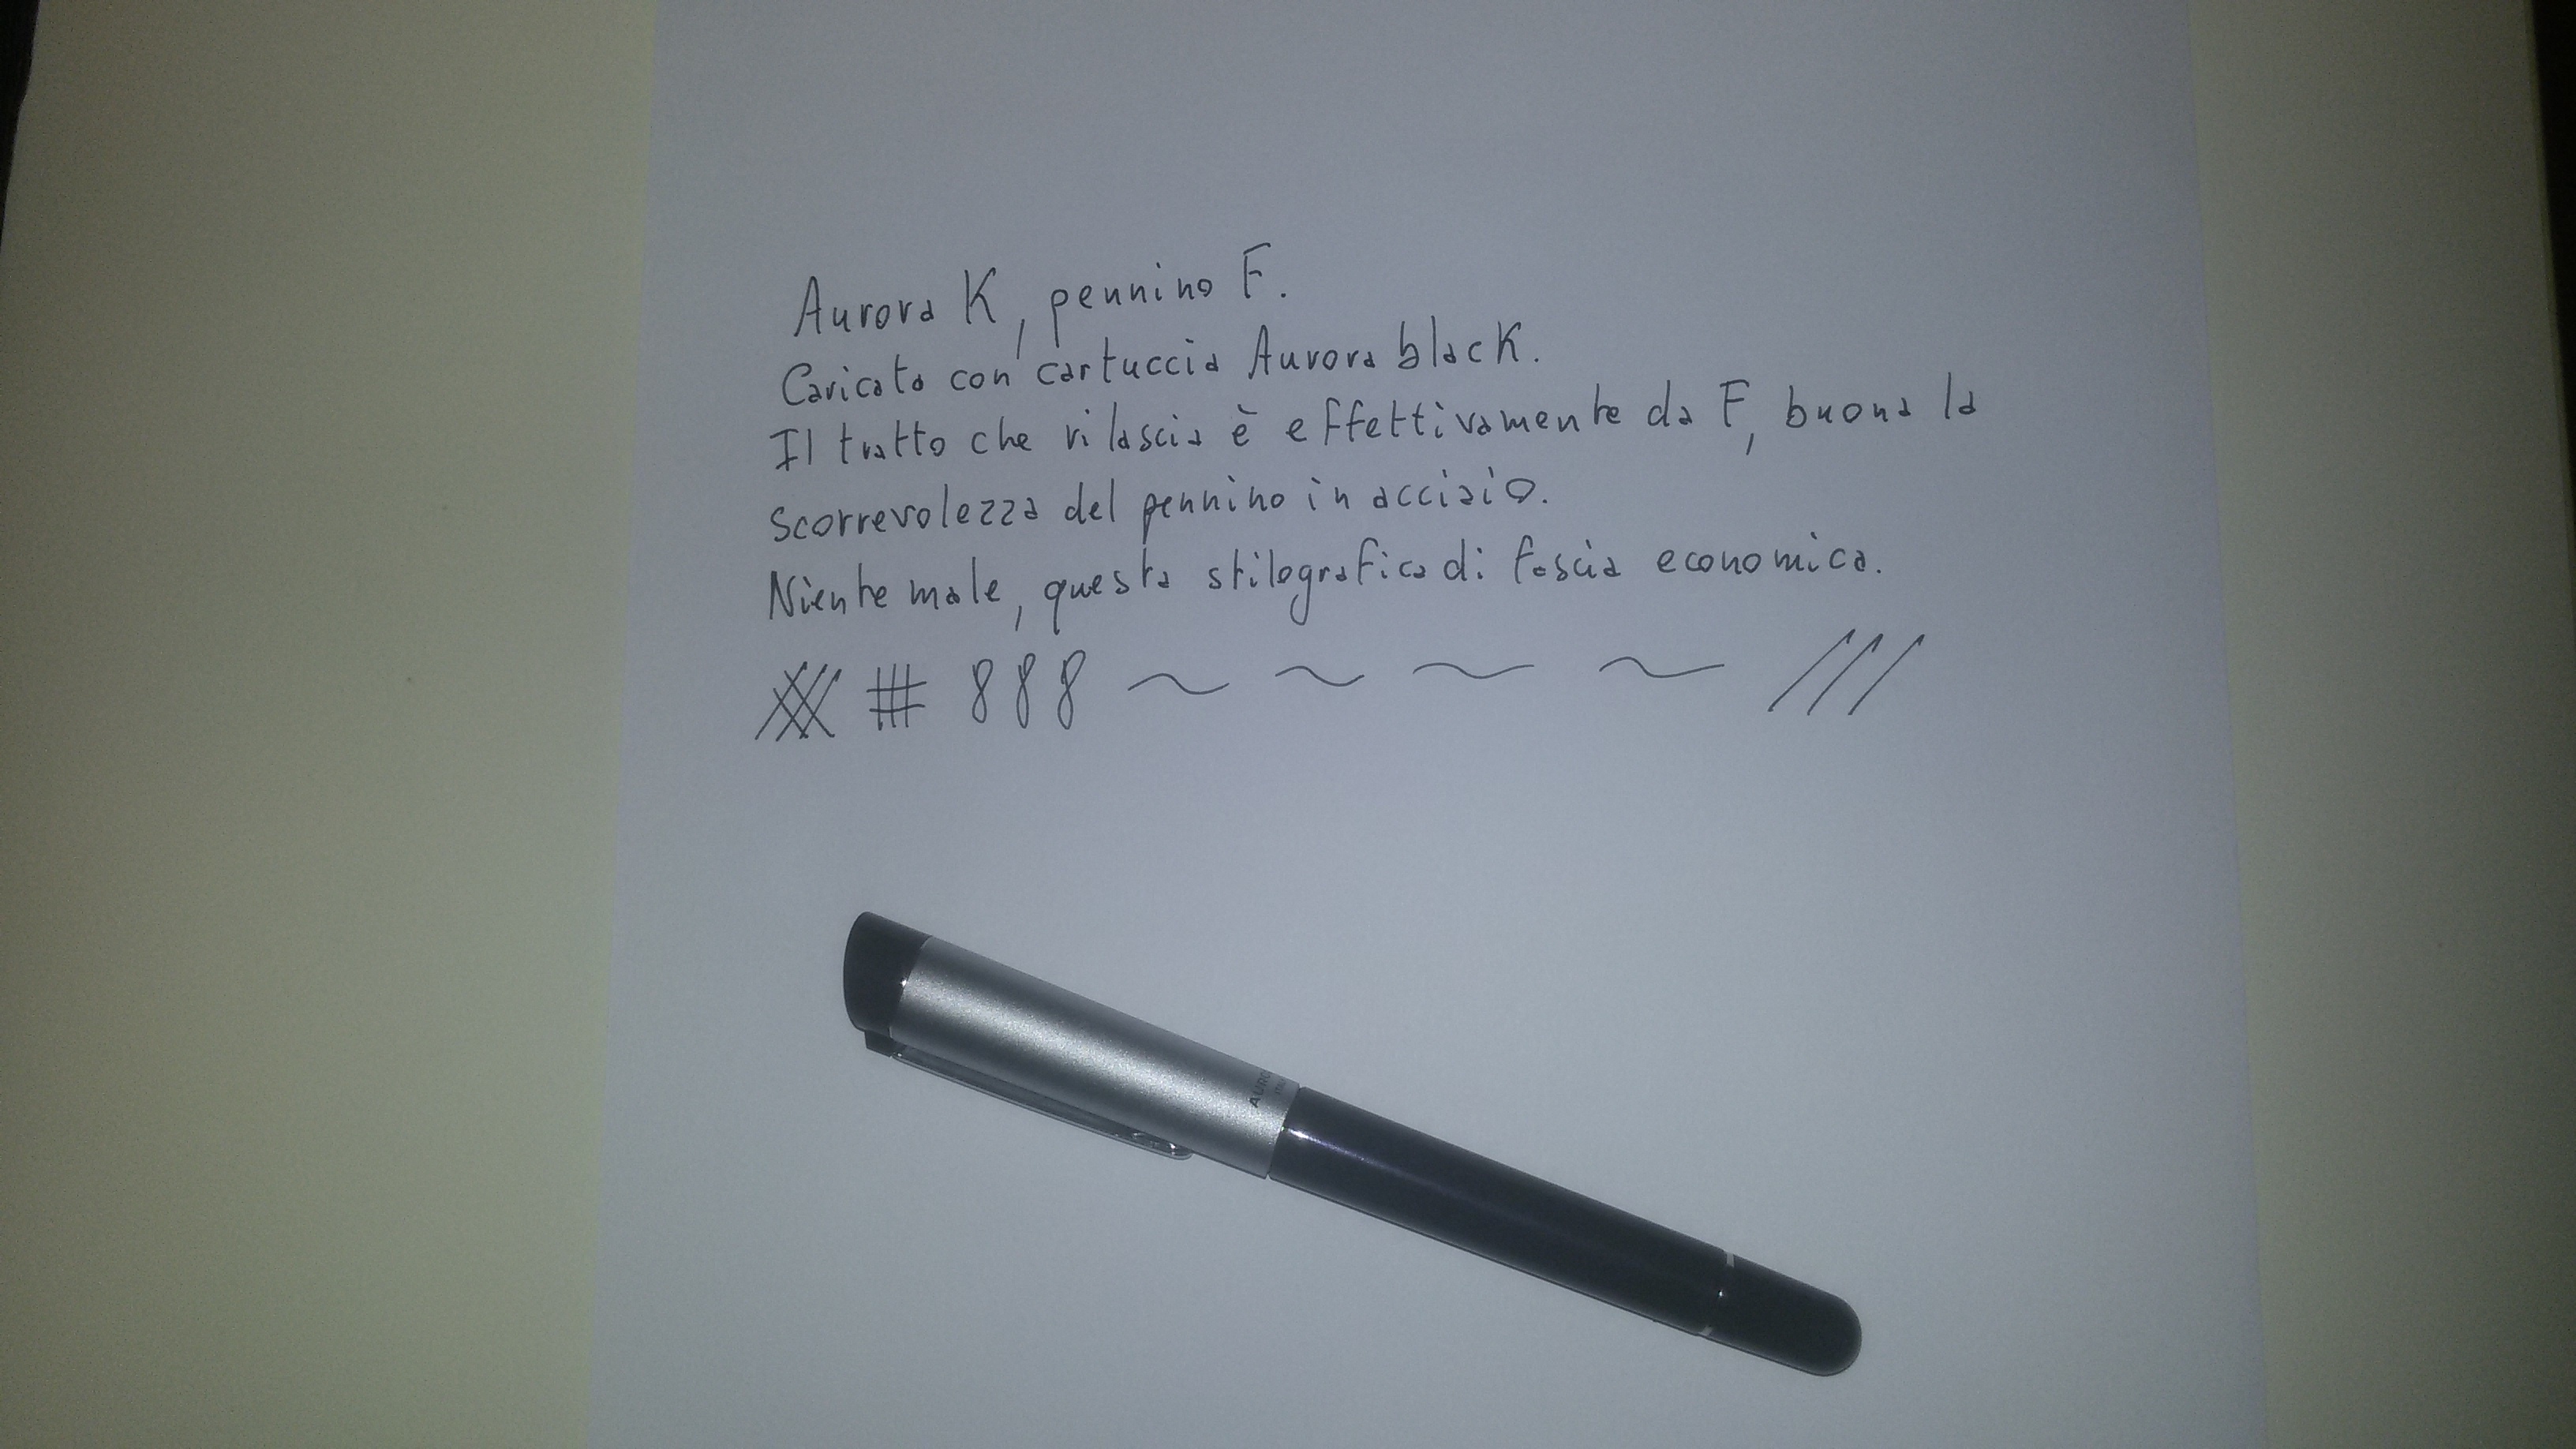 Aurora K, pennino F.
Caricata con cartuccia Aurora black.
Il tratto che rilascia è effettivamente da F, buona la
scorrevolezza del pennino in acciaio.
Niente male, questa stilografica di fascia economica.
# 888 ~ ~ ~ ~ ///